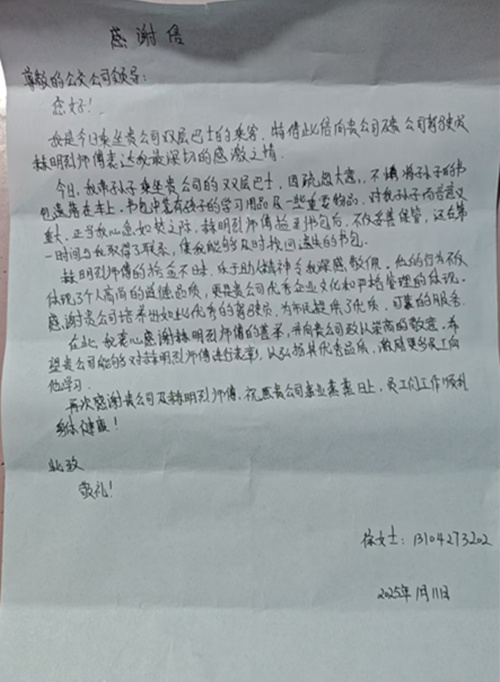 感谢信
尊敬的公交公司领导:
您好!
我是今日乘坐贵公司双层巴士的乘客,特借此信向贵公司及贵公司驾驶员
赫明烈师傅表达我最深切的感激之情.
今日,我带孙子乘坐贵公司的双层巴士,因疏忽大意,不慎将孙子的书
包遗落在车上.书包中装有孩子的学习用品及一些重要物品,对我孙子而言意义
重大.正当我心急如焚之际,赫明烈师傅捡到书包后,不仅妥善保管,还在第
一时间与我取得了联系,使我能够及时找回遗失的书包.
赫明烈师傅的拾金不昧、乐于助人精神令我深感敬佩.他的行为不仅
体现了个人高尚的道德品质,更是贵公司优秀企业文化和严格管理的体现.
感谢贵公司培养出如此优秀的驾驶员,为市民提供了优质、可靠的服务.
在此,我衷心感谢赫明烈师傅的善举,并向贵公司致以崇高的敬意.希
望贵公司能够对赫明烈师傅进行表彰,以弘扬其优秀品质,激励更多员工向
他学习.
再次感谢贵公司及赫明烈师傅,祝愿贵公司事业蒸蒸日上,员工们工作顺利
身体健康!
此致
敬礼!
徐女士:13104273202
2025年1月11日